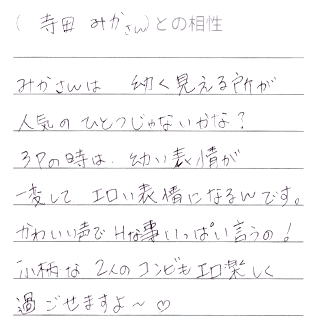 ( 寺田 みかさん)との相性
みかさんは 幼く見える所が
人気のひとつじゃないかな?
3Pの時は、幼い表情が
一変して エロい表情になるんです。
かわいい声でHな事いっぱい言うの!
小柄な 2人のコンビもエロ楽しく
過ごせますよ〜♡